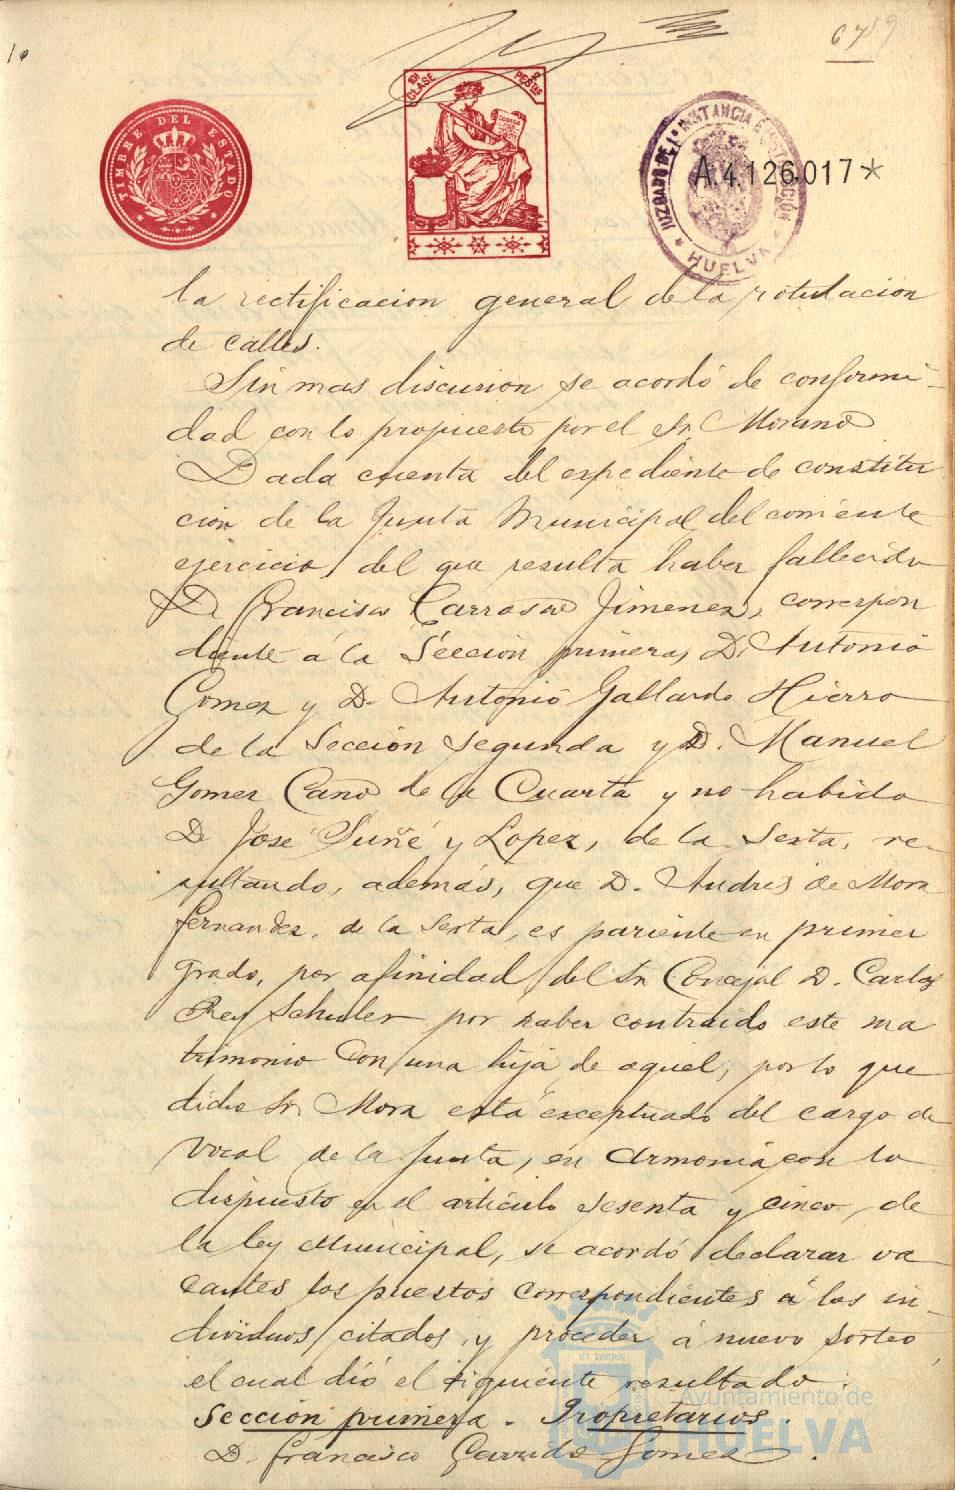 10
67
19
10ª CLASE
2 PESETAS
CODIGO
TIMBRE DEL ESTADO
JUZGADO DE 1ª INSTANCIA E INSTRUCCIÓN
* HUELVA *
A.4.126.017*
la rectificacion general de la rotulacion
de calles.
Sin mas discusion se acordó de conformi-
dad con lo propuesto por el Sr. Morano
Dada cuenta del expediente de constitu
cion de la Junta Municipal del corriente
ejercicio, del que resulta haber fallecido
D. Francisco Carrasco Jimenez, correspon
diente á la Sección primera, D. Antonio
Gomez y D. Antonio Gallardo Hierro
de la Sección segunda y D. Manuel
Gomez Cano de la Cuarta y no habido
D José Suñé y Lopez, de la Sexta, re-
sultando, además, que D. Andres de Mora
Fernandez, de la Sexta, es pariente en primer
grado, por afinidad, del Sr. Concejal D. Carlos
Rey Schuler por haber contraido este ma
trimonio con una hija de aquel, por lo que
dicho Sr. Mora está exceptuado del cargo de
vocal de la Junta, en armonia con lo
dispuesto en el articulo sesenta y cinco, de
la ley Municipal, se acordó declarar va
cantes los puestos correspondientes á los in-
dividuos citados, y proceder á nuevo sorteo,
el cual dió el siguiente resultado.
Sección primera - Propietarios.
D. Francisco Garrido Gomez.
ET TERRA
Ayuntamiento de
HUELVA